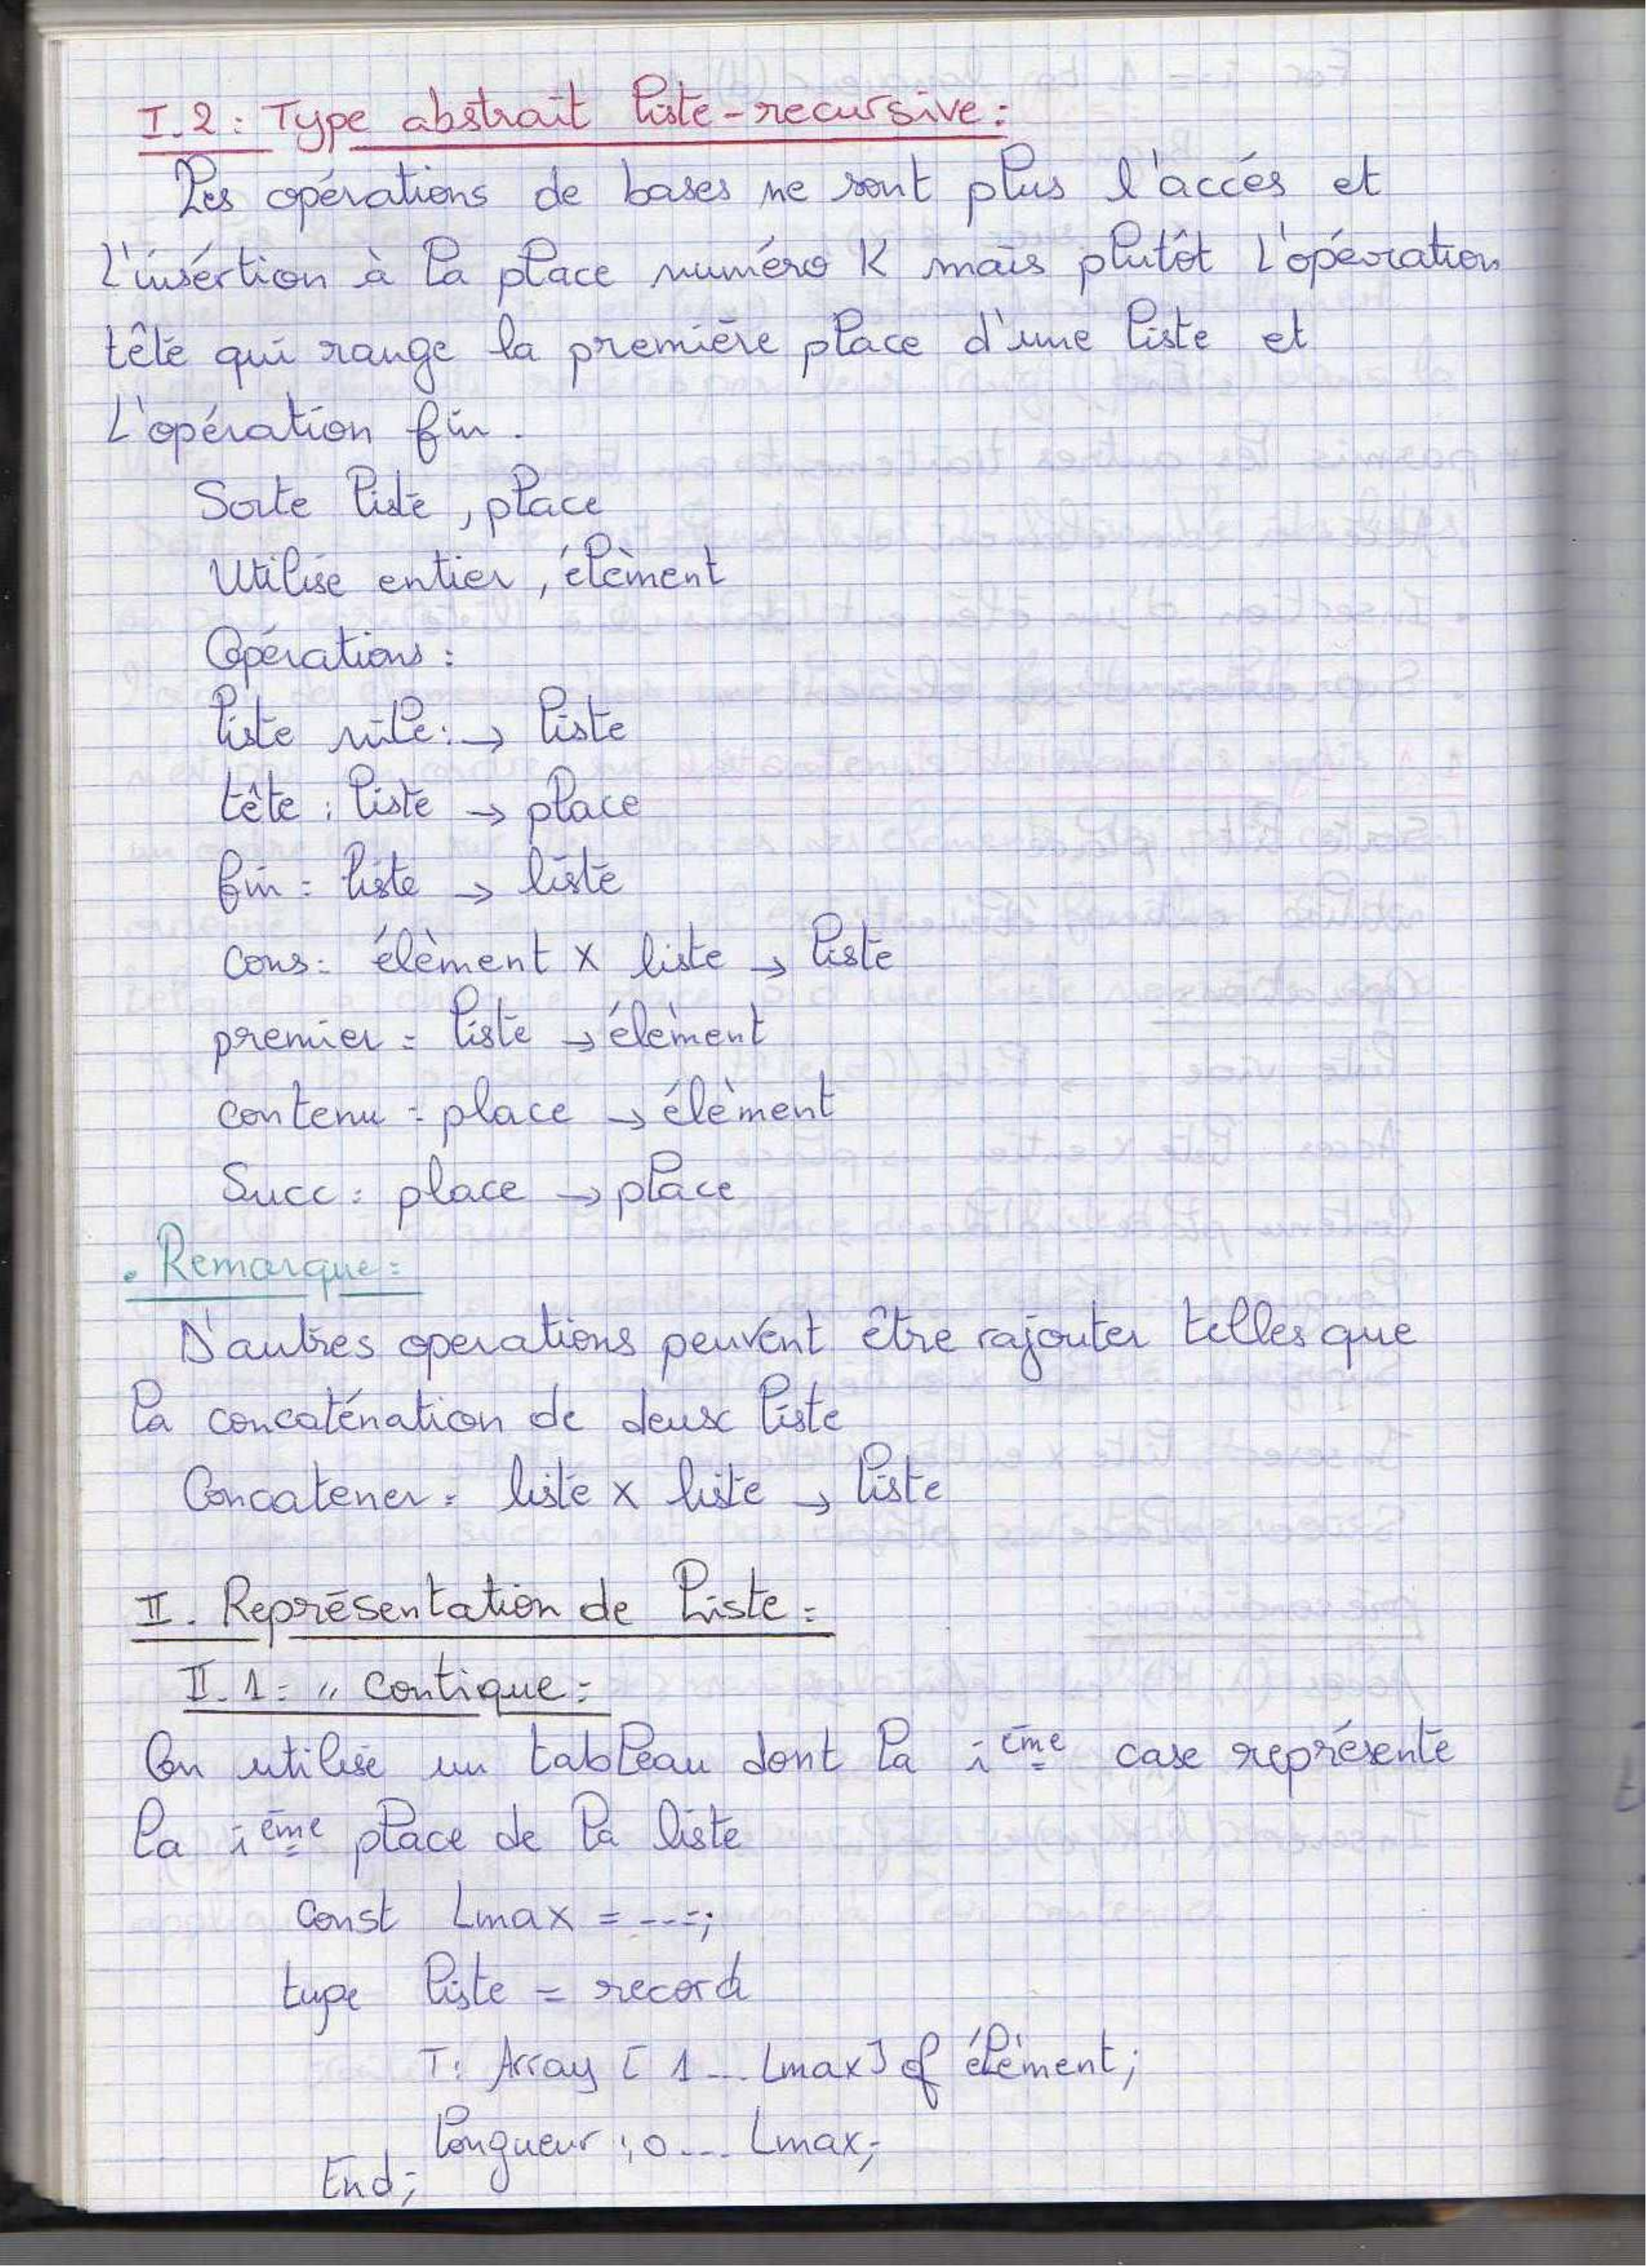 I.2: Type abstrait liste-recursive:
Les opérations de bases ne sont plus l'accés et
L'insértion à la place numéro K mais plutôt L'opération
tête qui range la première place d'une liste et
L'opération fin.
Sorte liste, place
Utilise entier, élèment
Opérations:
liste nile: → liste
tête: liste → place
fin: liste → liste
Cons: élèment x liste → liste
premier: liste → élèment
contenu: place → élèment
Succ: place → place
. Remarque:
D'autres operations peuvent être rajouter telles que
la concaténation de deux liste
Concatener: liste x liste → liste
II. Représentation de Liste:
II.1: " Contique:
On utilise un tableau dont la i ème case représente
la i ème place de la liste
Const Lmax = ---;
type liste = record
T: Array [ 1... Lmax] of élèment;
longueur : 0... Lmax;
End;